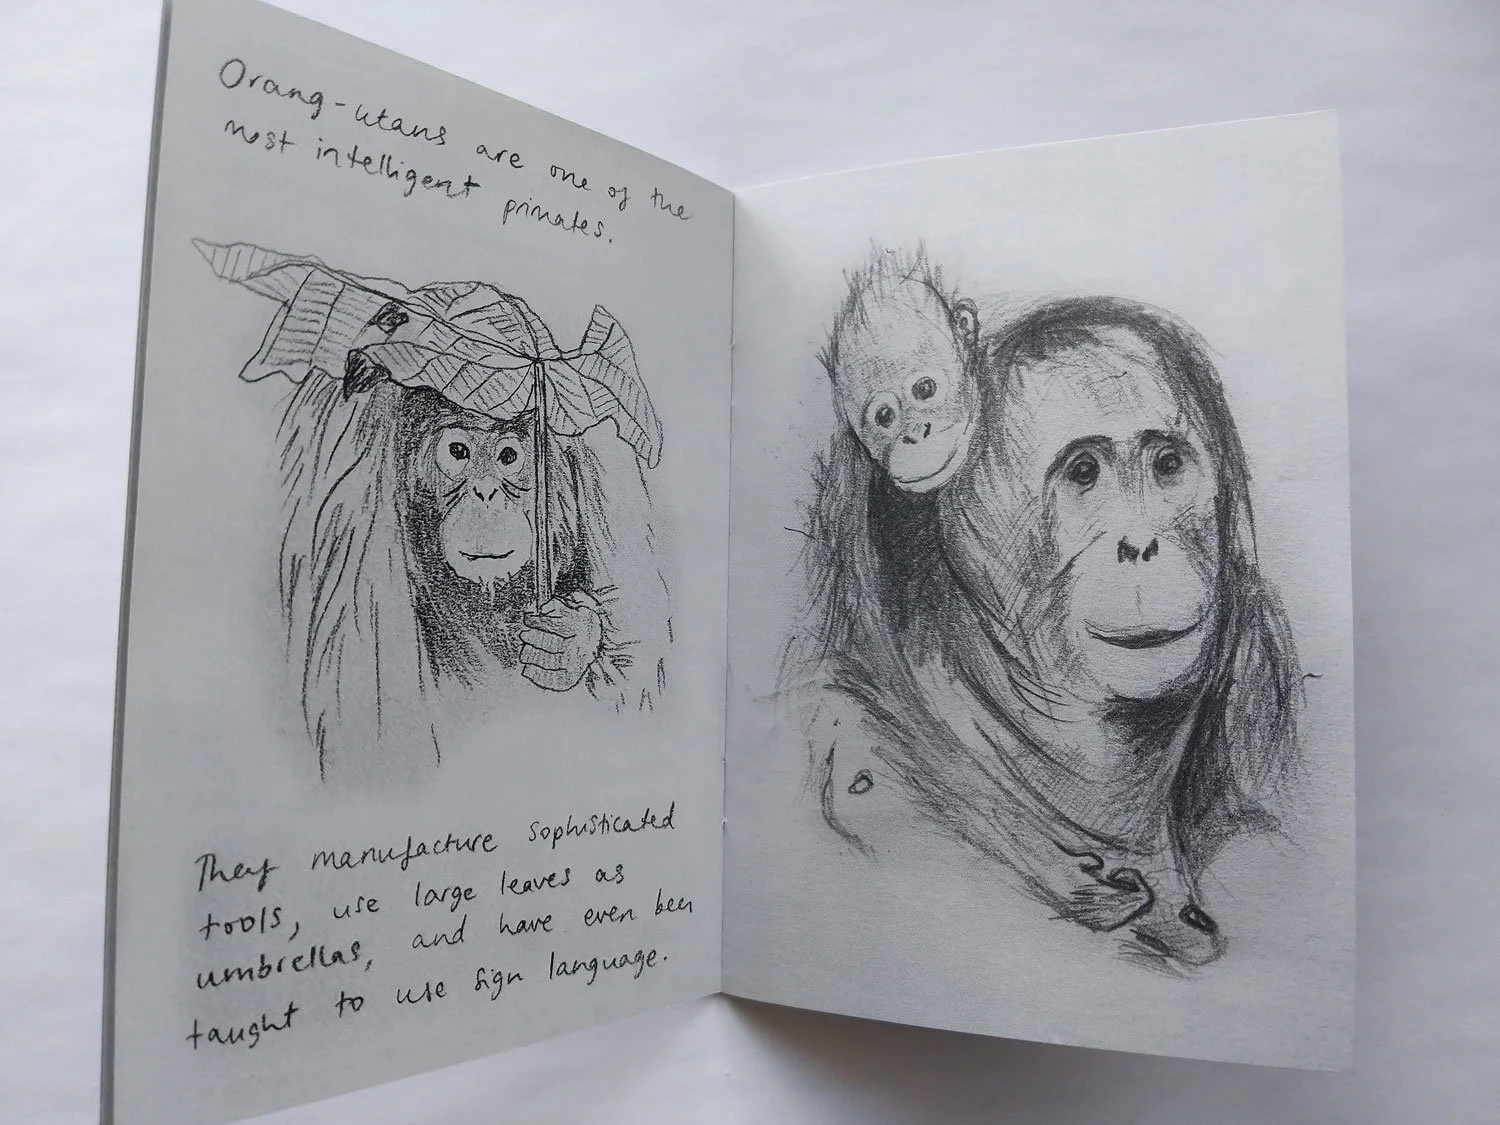 Orang-utans are one of the
most intelligent primates.
They manufacture sophisticated
tools, use large leaves as
umbrellas, and have even been
taught to use sign language.